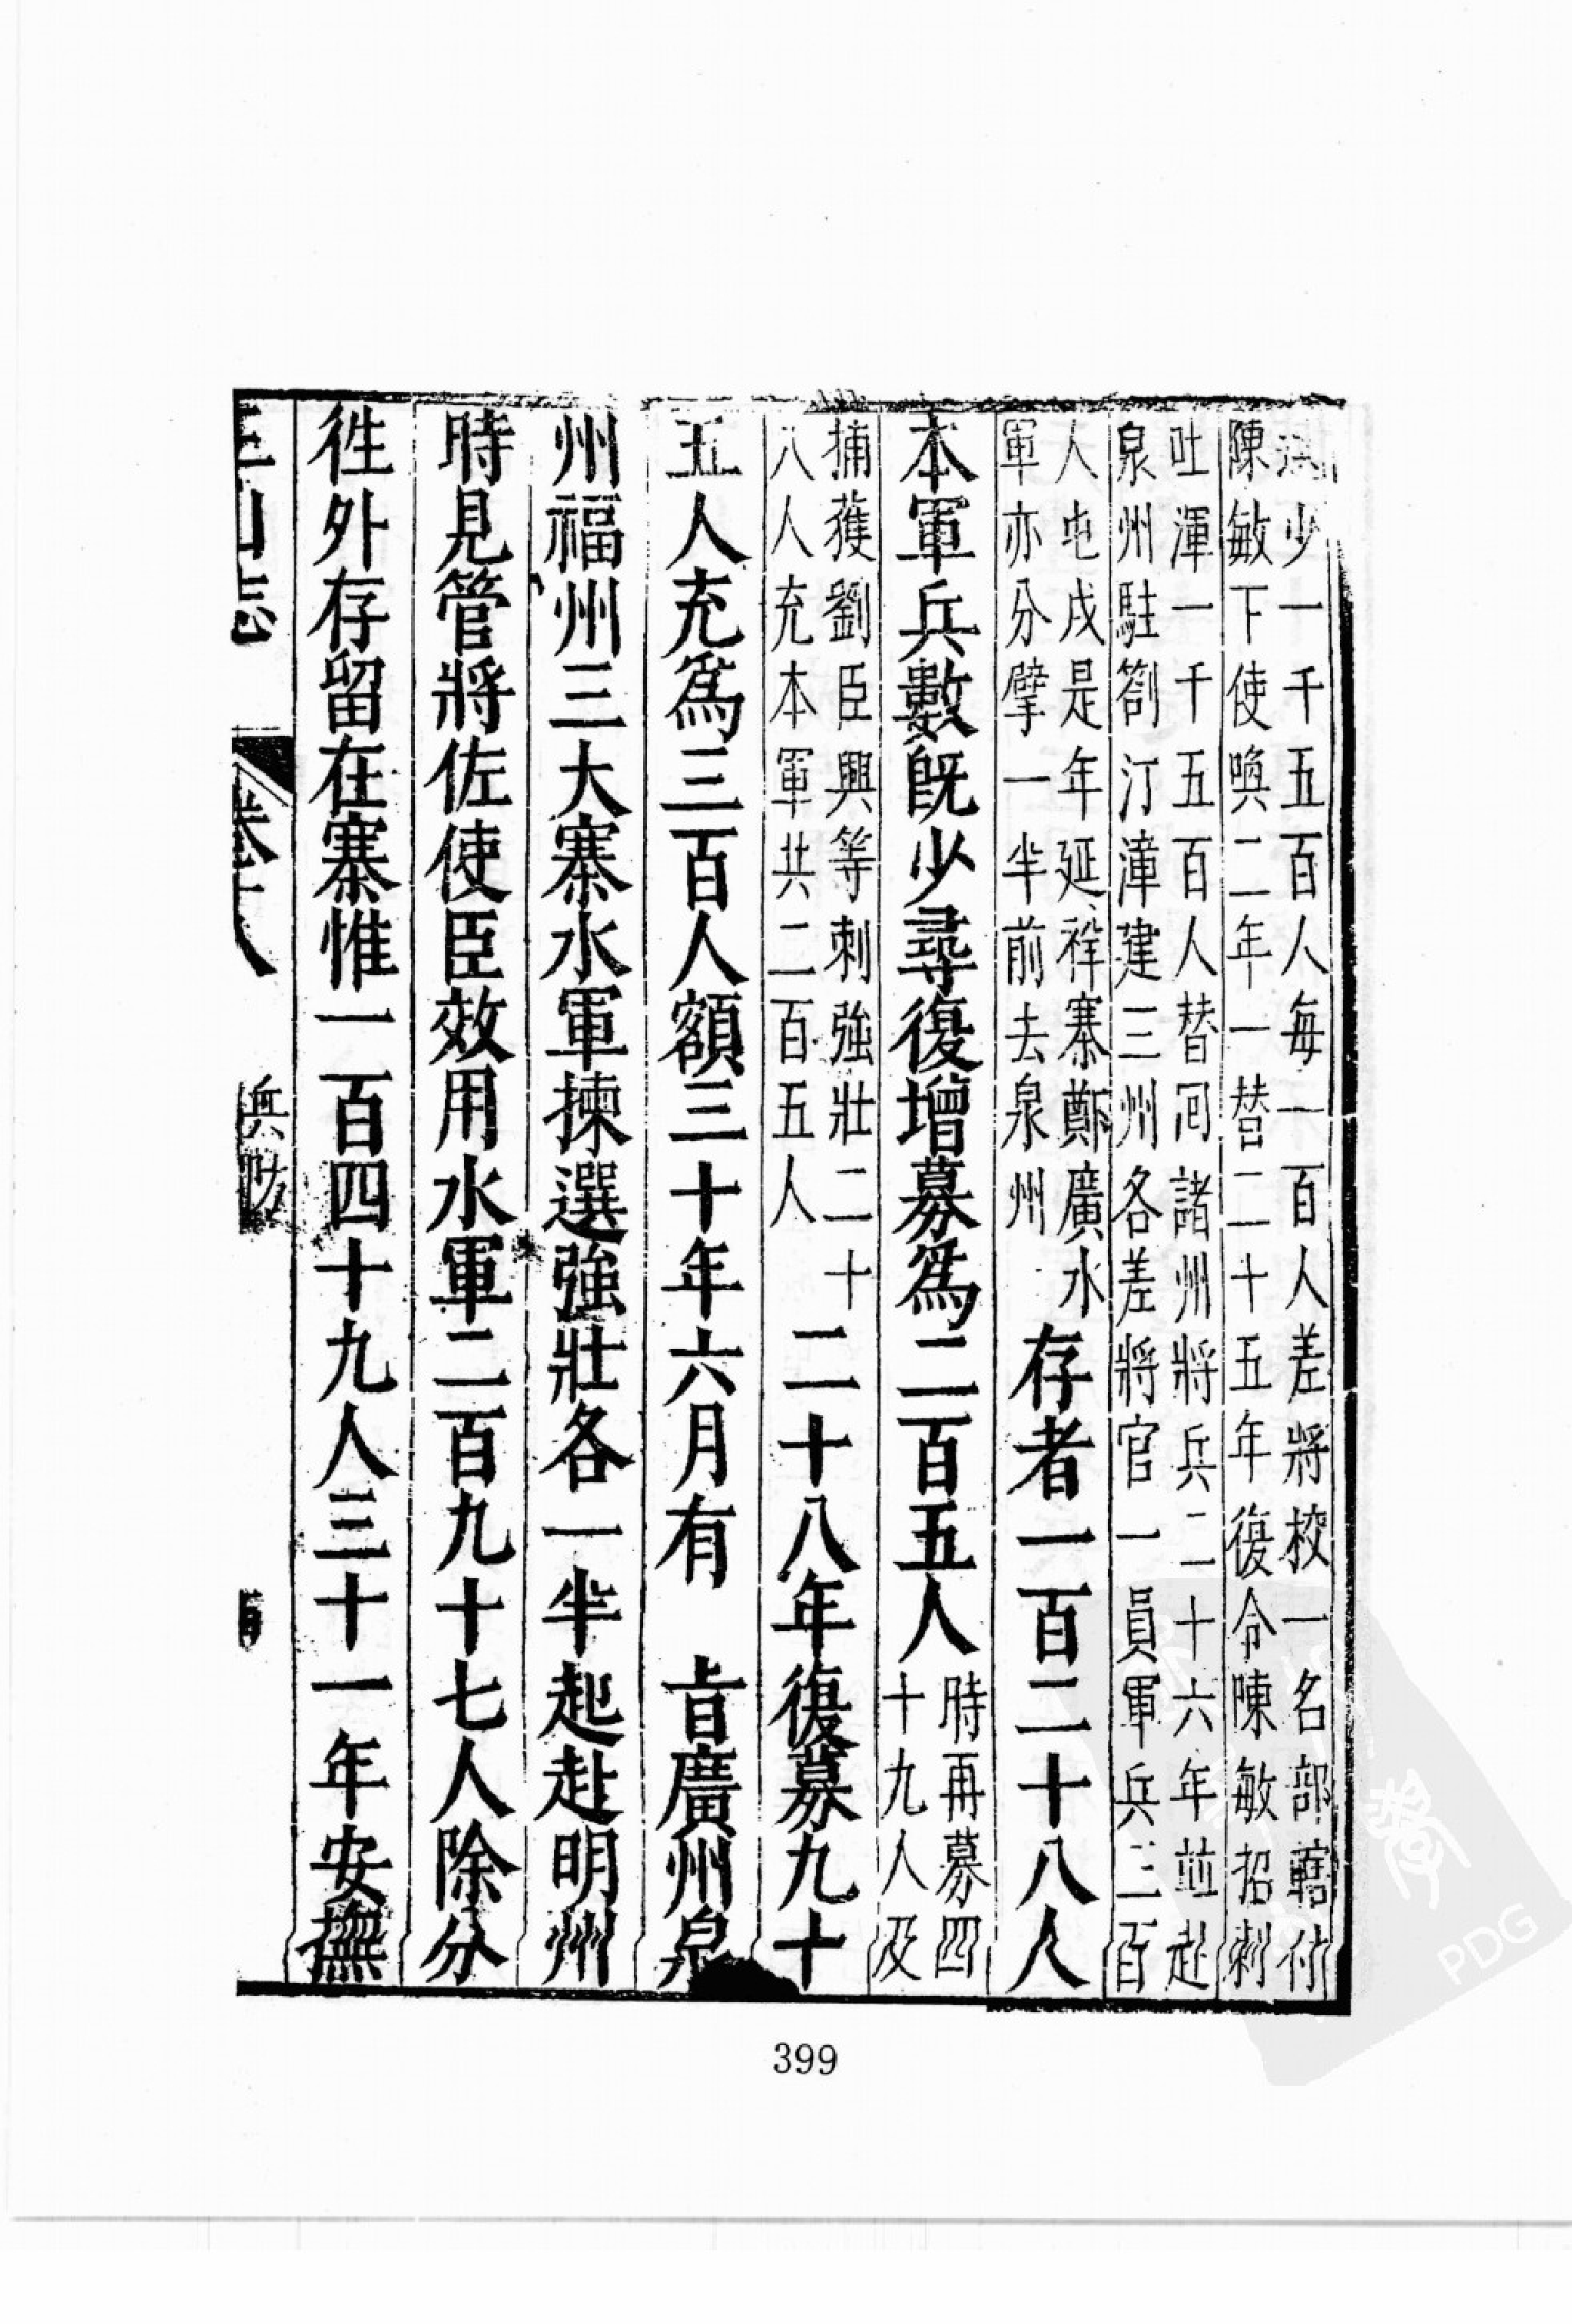 少一千五百人每一百人差將校一名部轄付
陳敏下使喚二年一替二十五年復令陳敏招刺
吐渾一千五百人替囘諸州將兵二十六年並赴
泉州駐劄汀漳建三州各差將官一員軍兵三百
人屯戍是年延祥寨鄭廣水
軍亦分擘一半前去泉州
存者一百二十八人
本軍兵數旣少尋復增募爲二百五人
時再募四
十九人及
捕獲劉臣興等刺強壯二十
八人充本軍共二百五人
二十八年復募九十
五人充爲三百人額三十年六月有 旨廣州泉
州福州三大寨水軍揀選強壯各一半起赴明州
時見管將佐使臣效用水軍二百九十七人除分
徃外存留在寨惟一百四十九人三十一年安撫
三山志 卷十八 兵防
399
PDG